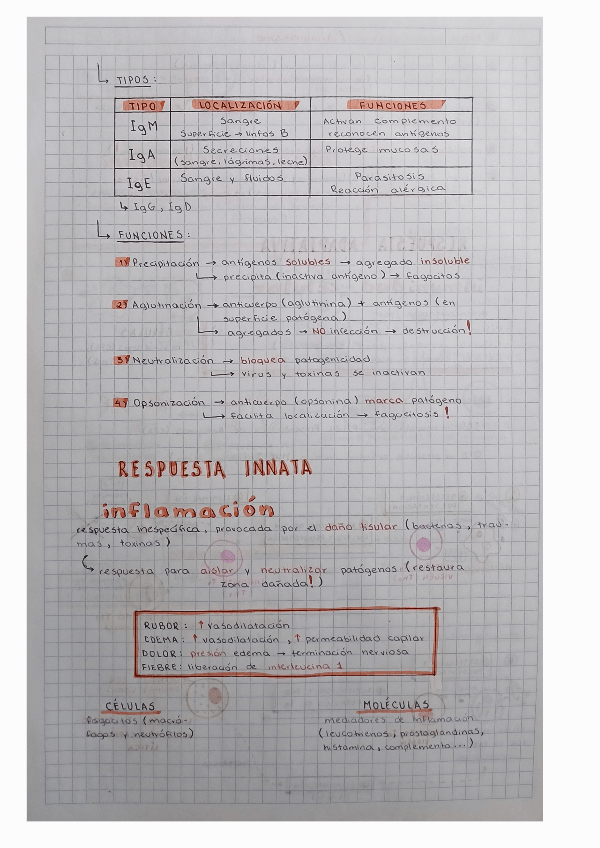 ↳ TIPOS:
TIPO LOCALIZACIÓN FUNCIONES
IgM Sangre Activan complemento
Superficie → linfos B reconocen antígenos
IgA Secreciones Protege mucosas
(sangre, lágrimas, leche)
IgE Sangre y fluidos Parasitosis
Reacción alérgica
↳ IgG, IgD
↳ FUNCIONES:
1º Precipitación → antígenos solubles → agregado insoluble
↳ precipita (inactiva antígeno) → fagocitos
2º Aglutinación → anticuerpo (aglutinina) + antígenos (en
superficie patógena)
↳ agregados → NO infección → destrucción!
3º Neutralización → bloquea patogenicidad
↳ virus y toxinas se inactivan
4º Opsonización → anticuerpo (opsonina) marca patógeno
↳ facilita localización → fagocitosis!
RESPUESTA INNATA
inflamación
respuesta inespecífica, provocada por el daño tisular (bacterias, trau-
mas, toxinas)
↳ respuesta para aislar y neutralizar patógenos (restaura
zona dañada!)
RUBOR: ↑ vasodilatación
EDEMA: ↑ vasodilatación, ↑ permeabilidad capilar
DOLOR: presión edema → terminación nerviosa
FIEBRE: liberación de interleucina 1
CÉLULAS MOLÉCULAS
fagocitos (macró- mediadores de inflamación
fagos y neutrófilos) (leucotrienos, prostaglandinas,
histamina, complemento...)